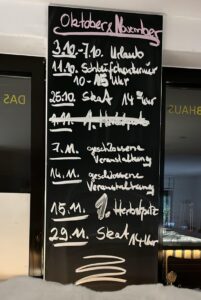 Oktober & November
3.10.-7.10. Urlaub
11.10.
10-15 Uhr
25.10. Skat 14 Uhr
1.11. 1. Herbstputz
7.11. geschlossene
Veranstaltung
14.11. geschlossene
Veranstaltung
15.11. 1. Herbstputz
29.11. Skat 14 Uhr
DAS
BHAUS